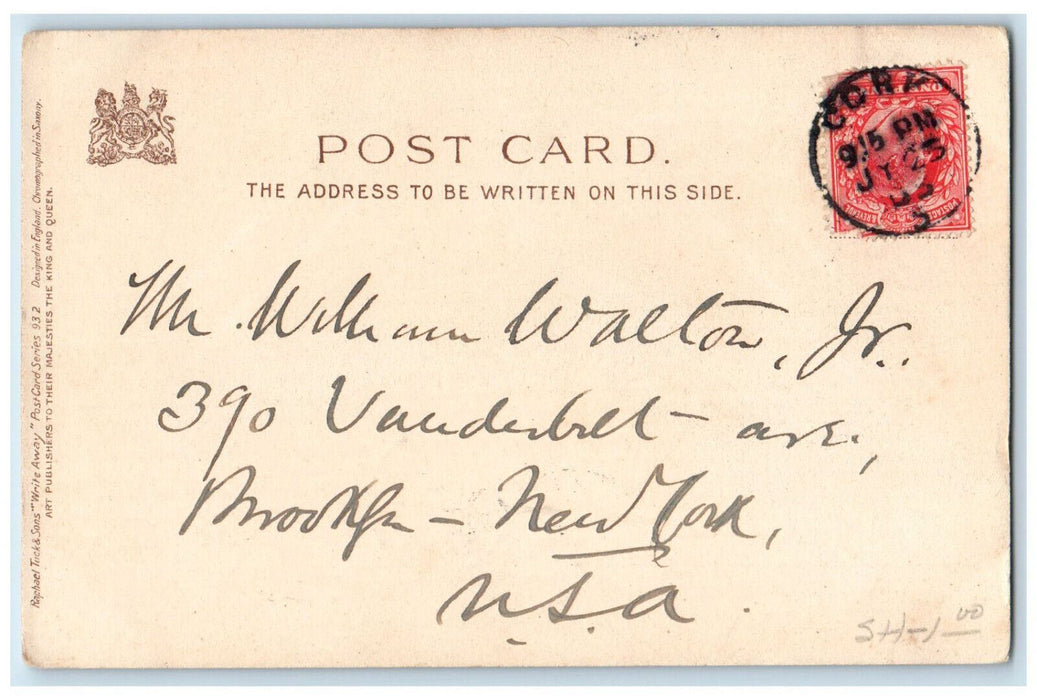 POST CARD.
THE ADDRESS TO BE WRITTEN ON THIS SIDE.
CORK
9.15 PM
JY 23
Mr. William Walton, Jr.
390 Vanderbilt ave.,
Brooklyn – New York,
U.S.A.
SH-1 00
Raphael Tuck & Sons' "Write Away" Post Card Series 932 Designed in England. Chromographed in Saxony.
ART PUBLISHERS TO THEIR MAJESTIES THE KING AND QUEEN.